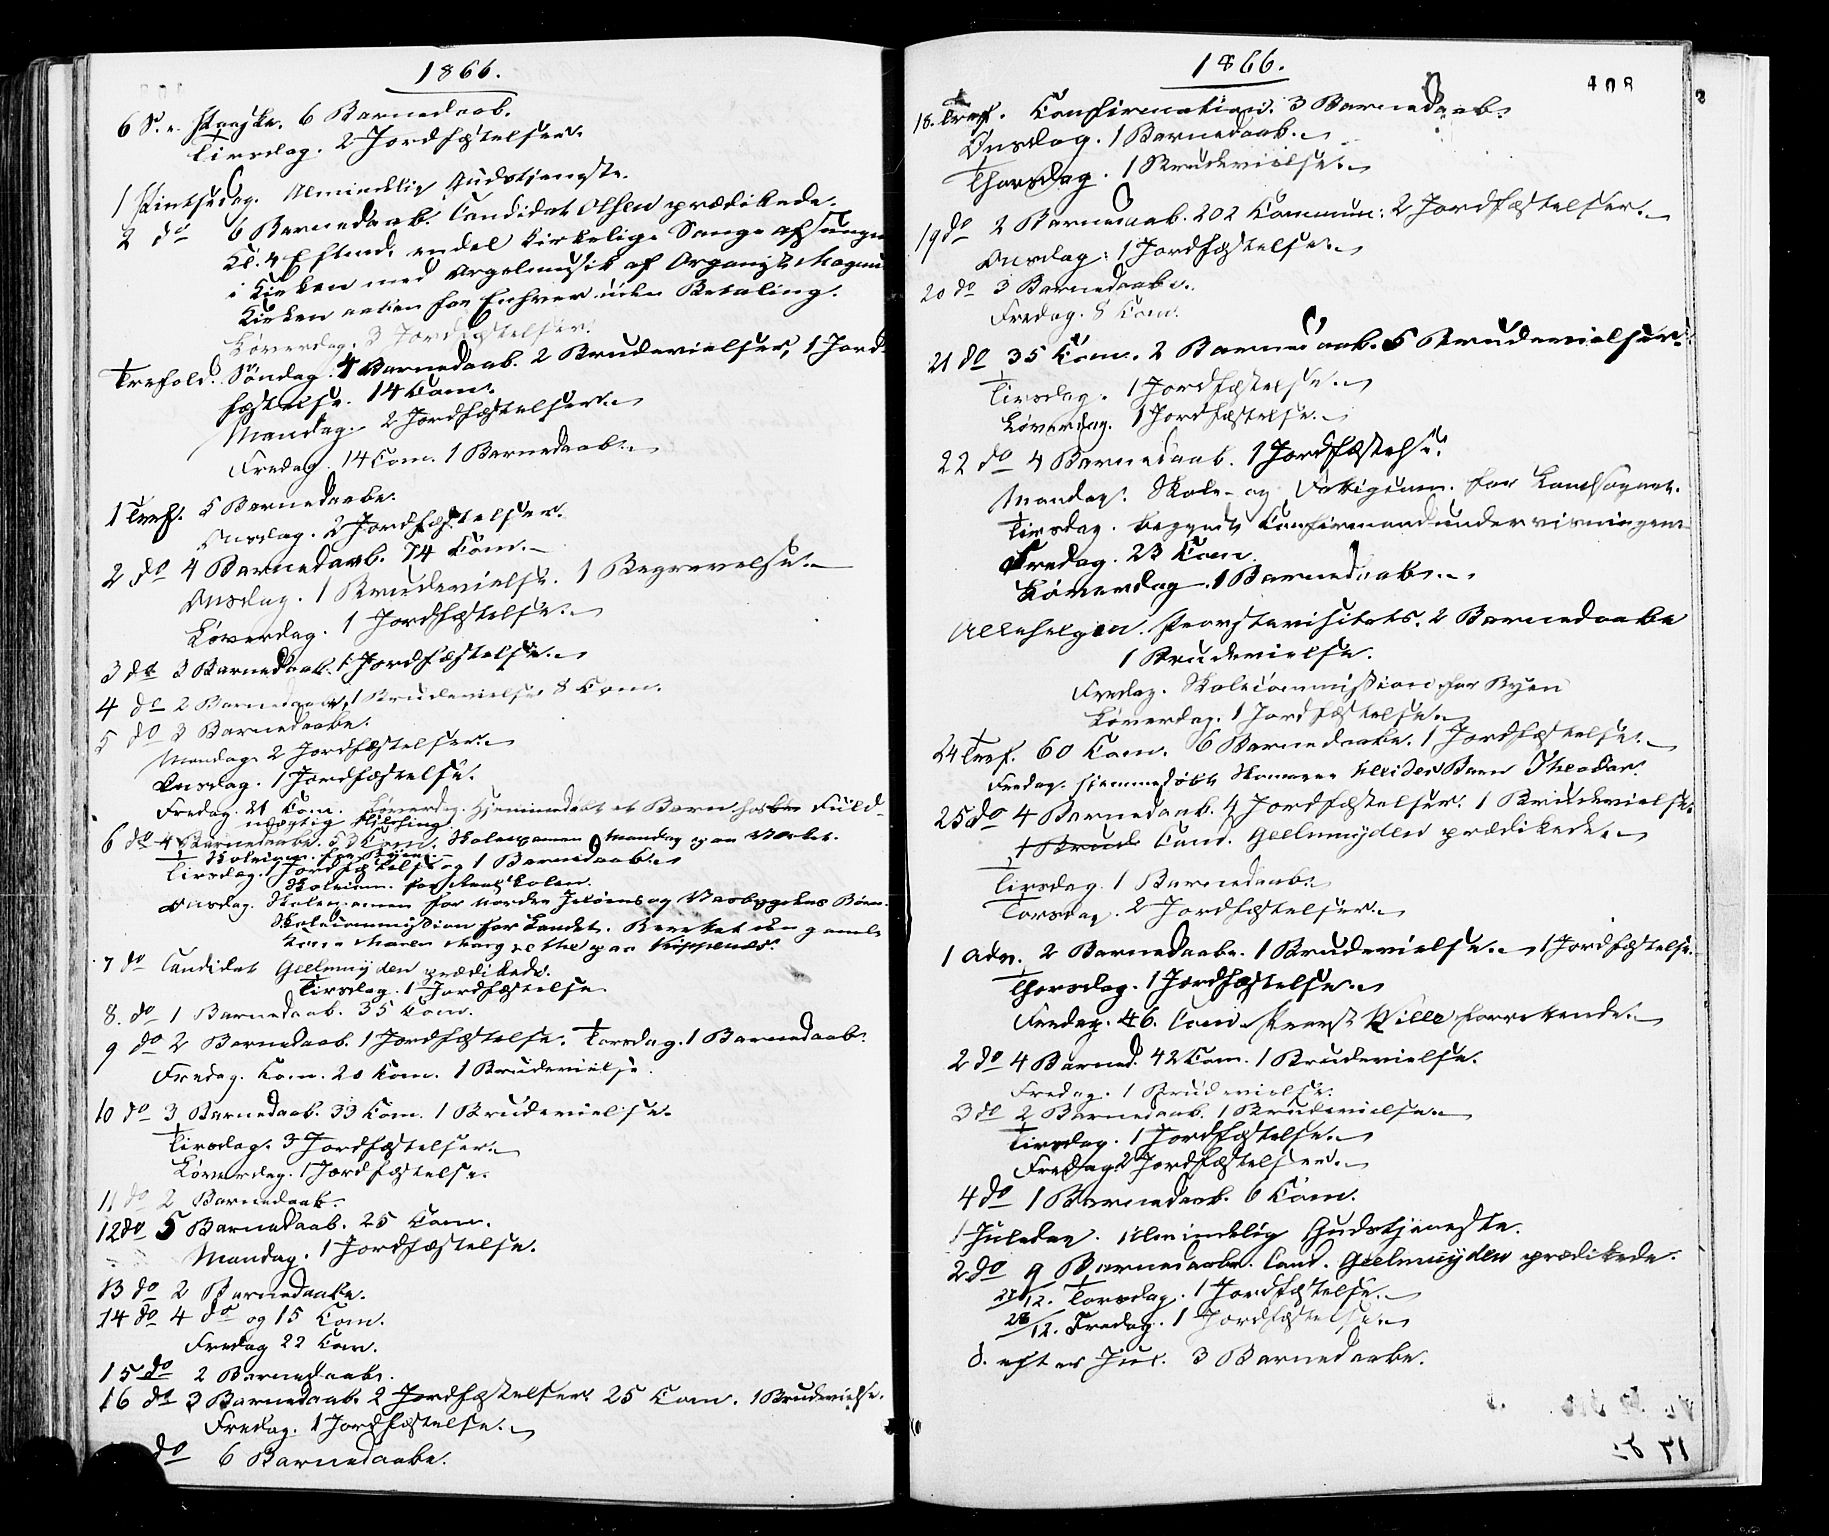 1866.
6 S. e. Paaske. 6 Barnedaab.
Tirsdag. 2 Jordfæstelser.
1 Pintsedag. Almindelig Gudstjeneste.
2 do 6 Barnedaab. Candidat Olsen prædikede.
Kl. 4 Eftmd. endel kirkelige Sange afsunget
i Kirken med Orgelmusik af Organist
Kirken aaben for Enhver uden Betaling.
Løverdag. 3 Jordfæstelser.
Trefold. Søndag. 4 Barnedaab. 2 Brudevielser, 1 Jord-
fæstelse. 14 Com.
Mandag. 2 Jordfæstelser.
Fredag. 14 Com. 1 Barnedaab.
1 Tref. 5 Barnedaabe.
Onsdag. 2 Jordfæstelser.
2 do 4 Barnedaab. 74 Com.
Onsdag. 1 Brudevielse. 1 Begravelse.
Løverdag. 1 Jordfæstelse.
3 do 3 Barnedaab. 1 Jordfæstelse.
4 do 2 Barnedaab, 1 Brudevielse 8 Com.
5 do 3 Barnedaabe.
Mandag 2 Jordfæstelser.
Onsdag. 1 Jordfæstelse.
Fredag. 21 Com. Løverdag. Hjemmedøbt et Barn hos Fuld-
mægtig
6 do 4 Barnedaabe. 53 Com. Skoleexamen Mandag paa
Skolecom. for Byen
Tirsdag. 1 Jordfæstelse og 1 Barnedaab.
Skolecom. for
Onsdag. Skoleexamen for nordre Jeløens og Børn.
Skolecommission for Landet. den gamle
Kone Maren Margrethe paa Kippenes.
7 do Candidat Geelmuyden prædikede.
Tirsdag. 1 Jordfæstelse
8. do 1 Barnedaab. 35 Com.
9 do 2 Barnedaab. 1 Jordfæstelse. Torsdag. 1 Barnedaab.
Fredag. Com. 20 Com. 1 Brudevielse.
10 do 3 Barnedaab. 33 Com. 1 Brudevielse.
Tirsdag. 3 Jordfæstelser.
Løverdag. 1 Jordfæstelse.
11 do 2 Barnedaab.
12 do 5 Barnedaab. 25 Com.
Mandag. 1 Jordfæstelse.
13 do 2 Barnedaabe.
14 do 4 do og 15 Com.
Fredag 22 Com.
15 do 2 Barnedaab.
16 do 3 Barnedaab. 2 Jordfæstelser 25 Com. 1 Brudevielse.
Fredag. 1 Jordfæstelse.
do 6 Barnedaabe.
1866.
408
18. Tref. Confirmation. 3 Barnedaab.
Onsdag. 1 Barnedaab.
Thorsdag. 1 Brudevielse.
19 do 2 Barnedaab. 202 Commun: 2 Jordfæstelser.
Onsdag: 1 Jordfæstelse.
20 do 3 Barnedaabe.
Fredag. 8 Com.
21 do 35 Com. 2 Barnedaab. 5 Brudevielser.
Tirsdag. 1 Jordfæstelse.
Løverdag. 1 Jordfæstelse.
22 do 4 Barnedaab. 1 Jordfæstelse.
Mandag. Skole- og Fattigcom. for Landsognet.
Tirsdag. begyndte Confirmandundervisningen
Fredag. 23 Com.
Løverdag. 1 Barnedaab.
Allehelgen. Provstevisitats. 2 Barnedaabe
1 Brudevielse.
Fredag. Skolecommission for Byen
Løverdag. 1 Jordfæstelse.
24 Tref. 60 Com. 6 Barnedaabe. 1 Jordfæstelse.
Fredag. hjemmedøbt Barn Theodor.
25 do 4 Barnedaab. 4 Jordfæstelser. 1 Brudevielse.
Cand. Geelmuyden prædikede.
Tirsdag. 1 Barnedaab.
Torsdag. 2 Jordfæstelser.
1 Adv. 2 Barnedaabe. 1 Brudevielse. 1 Jordfæstelse.
Thorsdag. 1 Jordfæstelse.
Fredag. 46. Com. Provst Wille forrettende.
2 do 4 Barned. 42 Com. 1 Brudevielse.
Fredag. 1 Brudevielse.
3 do 2 Barnedaab. 1 Brudevielse.
Tirsdag. 1 Jordfæstelse.
Fredag 2 Jordfæstelser.
4 do 1 Barnedaab. 6 Com.
1 Juledag. Almindelig Gudstjeneste.
2 do 9 Barnedaabe. Cand. Geelmuyden prædikede.
27/12. Torsdag. 1 Jordfæstelse.
28/12. Fredag. 1 Jordfæstelse.
S. efter Jul. 3 Barnedaabe.